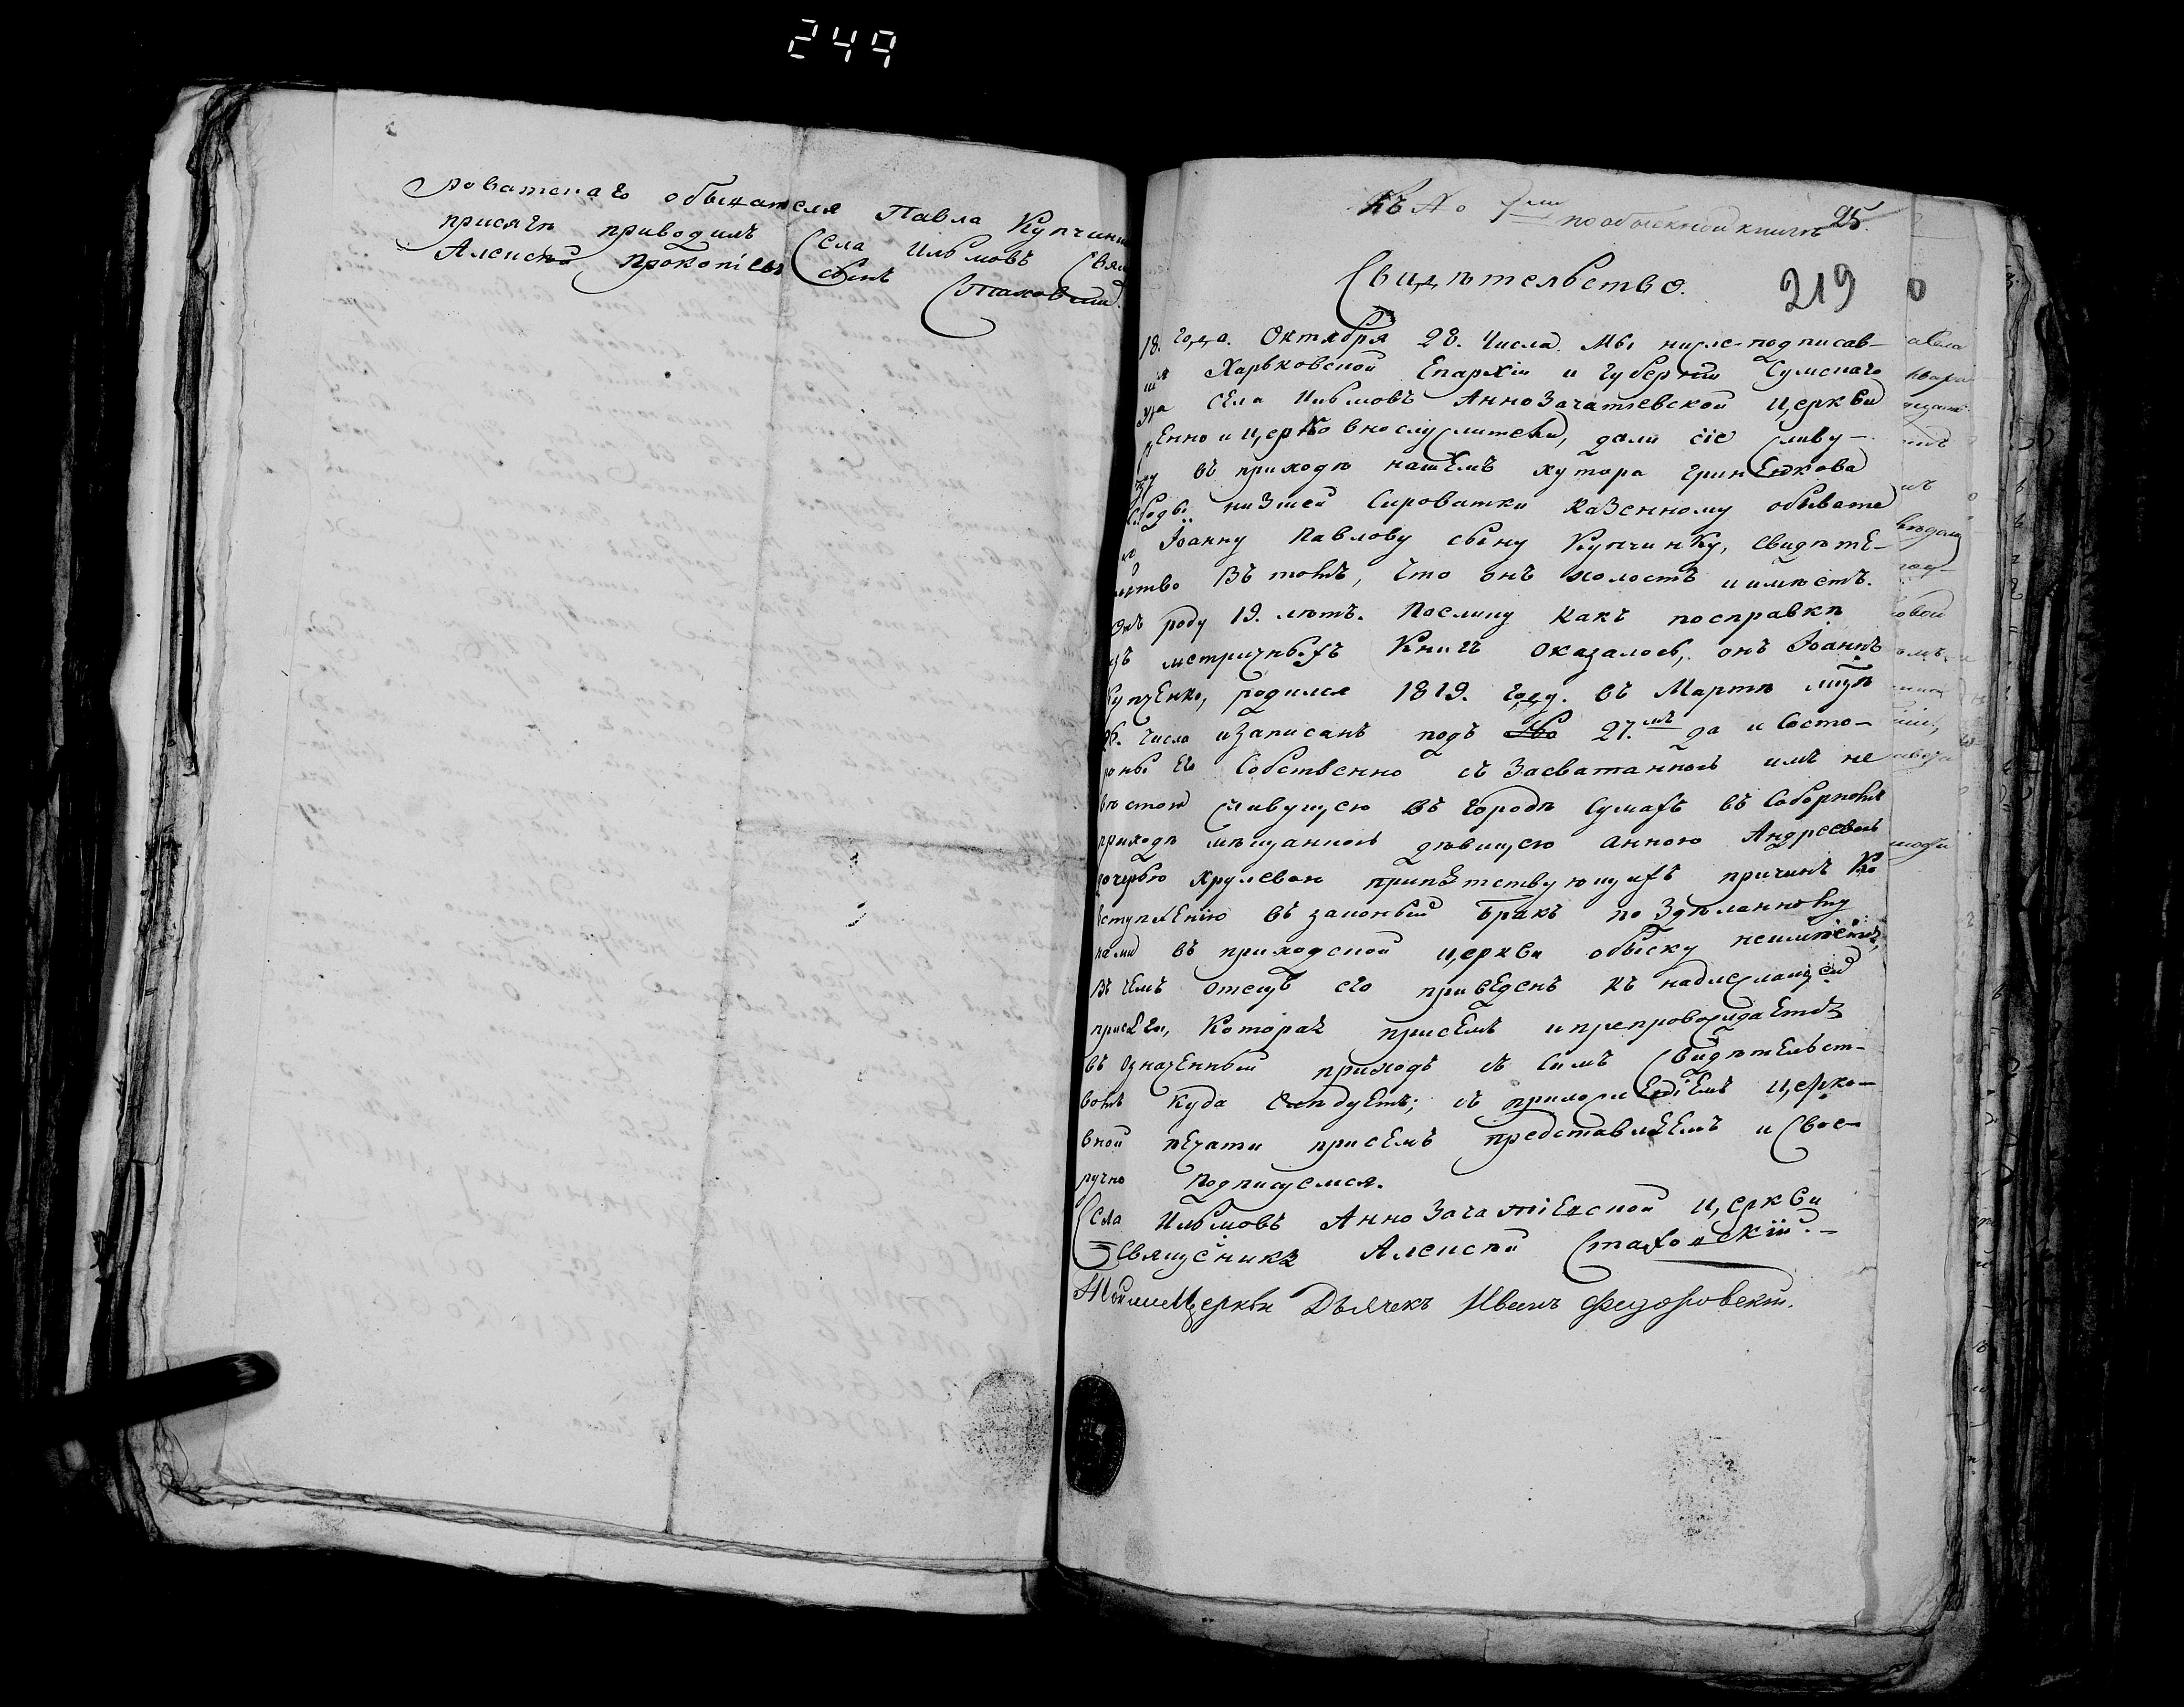 249
роватскаго обывателя Павла Купчинк
присягѣ приводилъ Села Ильмовъ Свящ
Алексѣй Прокопіевъ сынъ Стаховскій.
Къ No 7му по обыскной книгѣ 25.
Свидѣтельство. 219
18. года. Октября 28. Числа. Мы ниже подписав-
Харьковской Епархіи и Губерніи Сумскаго
Села Ильмовъ АнноЗачатіевской Церкви
енно и церковнослужители, дали сіе живу-
въ приходѣ нашемъ хутора Гриценкова
низшей Сироватки казенному обывате
Іоанну Павлову сыну Купчинку, свидѣте-
въ томъ, что онъ холостъ и имѣетъ.
роду 19. лѣтъ. Поелику какъ посправкѣ
метричныхъ Книгъ оказалось, онъ Іоаннъ
Купченко, родился 1819. году. въ Мартѣ мцѣ
числа и записанъ подъ No 27.мъ да и Состо-
роны его Собственно съ засватанною имъ не
вѣстою живущею въ городѣ Сумахъ въ Соборномъ
приходѣ мѣщанкою дѣвицею Анною Андреевою
дочерью Хрулевою препятствующихъ причинъ Ко
вступленію въ законный бракъ по Здѣланному
нами въ приходской церкви обыску неимѣетъ,
въ чемъ отецъ его приведенъ къ надлежащей
присягѣ, Которая присемъ и препровождается
въ означенный приходъ съ симъ Свидѣтельст-
вомъ куда слѣдуетъ; съ приложеніемъ церко-
вной печати присемъ представляемъ и Свое-
ручно подписуемся.
Села Ильмовъ АнноЗачатіевской церкви
Священникъ Алексѣй Стаховскій.-
Той же Церкви Дьячекъ Иванъ Федоровскій.